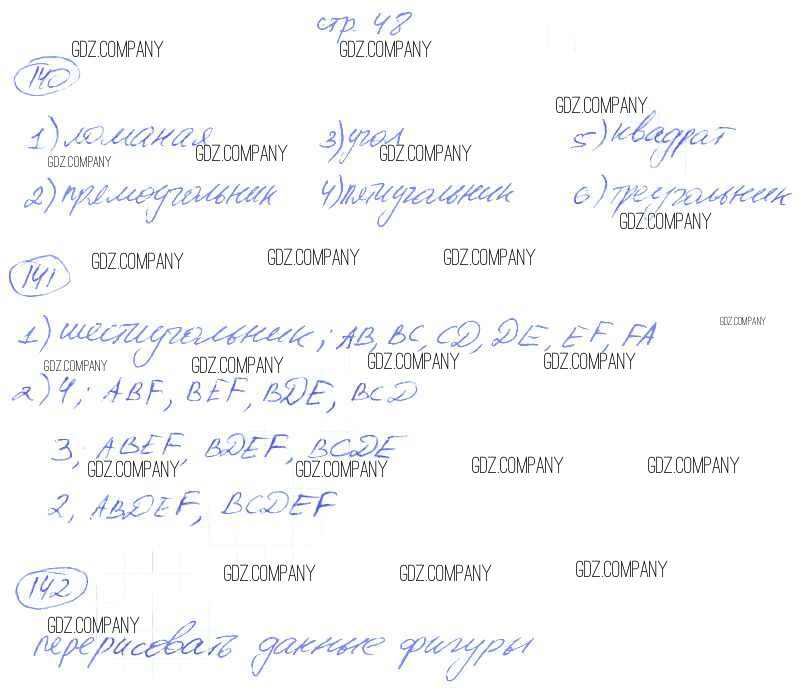 стр. 48
GDZ.COMPANY GDZ.COMPANY
140
GDZ.COMPANY
1) ломаная 3) угол 5) квадрат
GDZ.COMPANY GDZ.COMPANY GDZ.COMPANY
2) прямоугольник 4) пятиугольник 6) треугольник
GDZ.COMPANY
GDZ.COMPANY GDZ.COMPANY GDZ.COMPANY
141
1) шестиугольник; AB, BC, CD, DE, EF, FA
GDZ.COMPANY
GDZ.COMPANY GDZ.COMPANY GDZ.COMPANY GDZ.COMPANY
2) 4; ABF, BEF, BDE, BCD
3, ABEF, BDEF, BCDE
GDZ.COMPANY GDZ.COMPANY GDZ.COMPANY GDZ.COMPANY
2, ABDEF, BCDEF
142
GDZ.COMPANY GDZ.COMPANY GDZ.COMPANY
GDZ.COMPANY
перерисовать данные фигуры